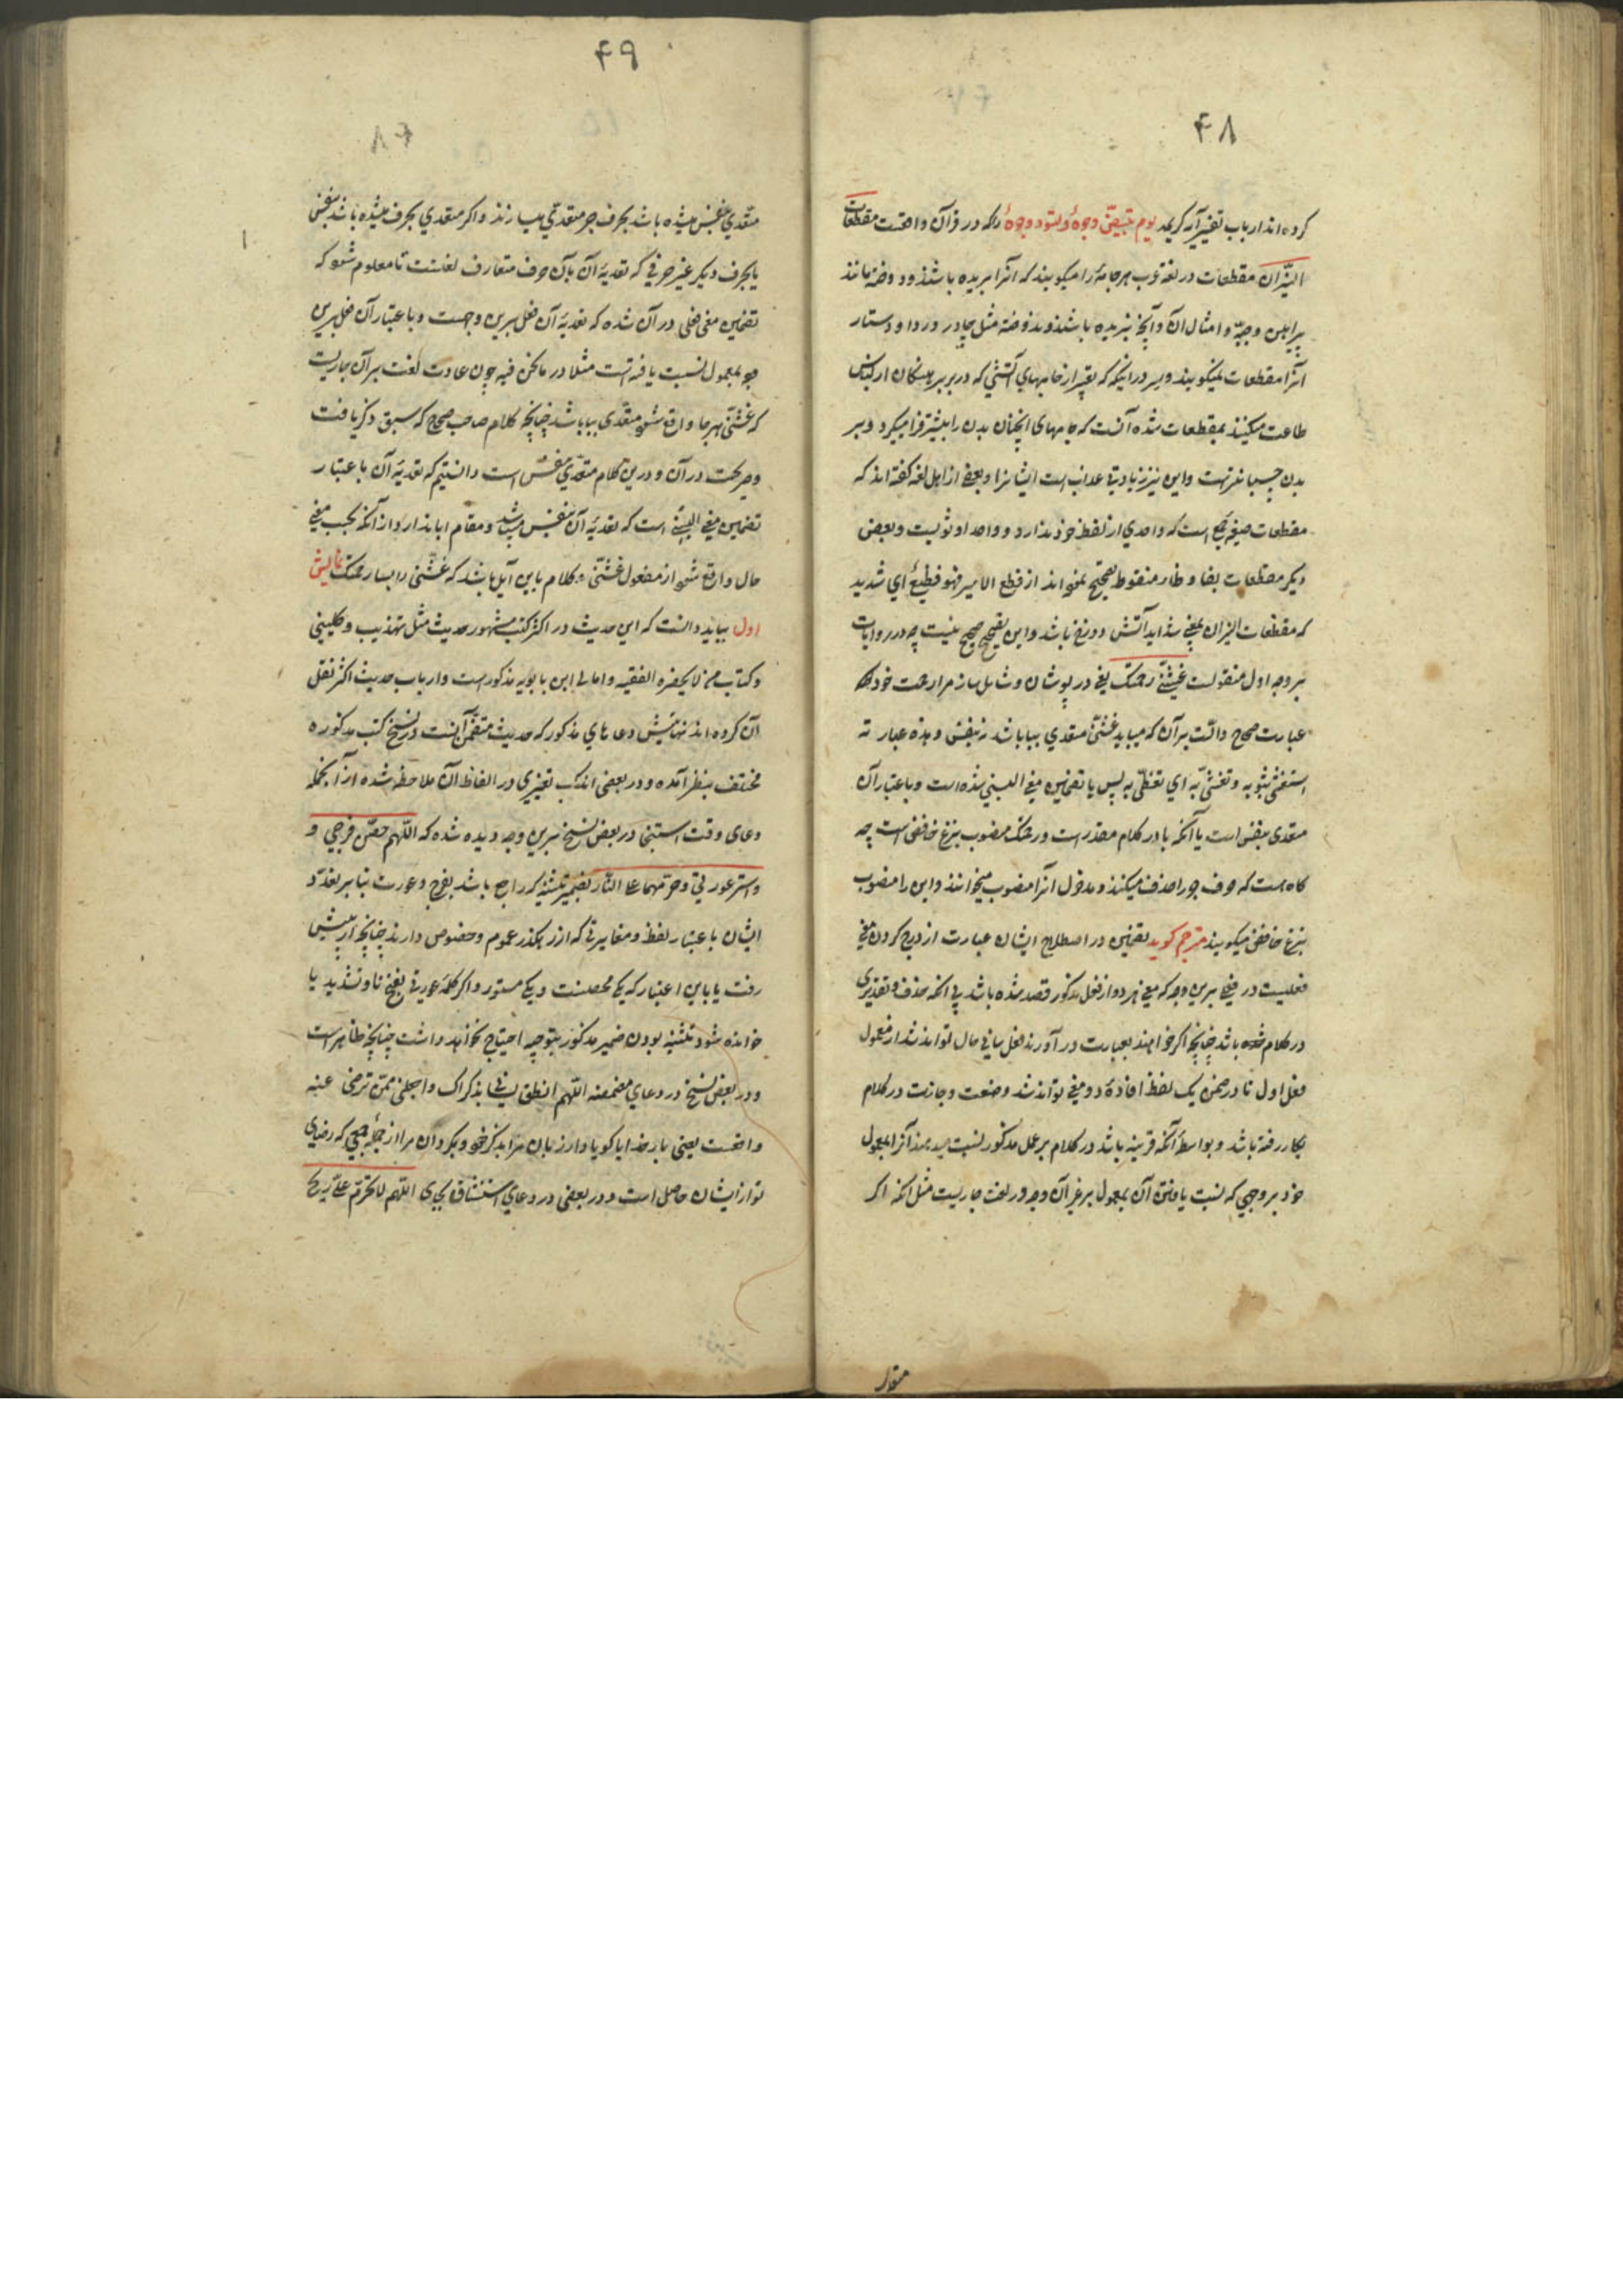 ۴۸
کرده‌اند ارباب تفسیر آیه کریمه یوم تبیضّ وجوهٌ و تسودّ وجوهٌ را که در قرآن واقعست مقطعات
النیران مقطعات در لغة عرب هر جامهٔ را میکویند که آنرا بریده باشند و دوخته مانند
پیراهن و جبّه و امثال آن و آنچه نبریده باشند و ندوخته مثل چادر و ردا و دستار
آنرا مقطعات نمیکویند و سر در اینکه تعبیر از جامهای آتشی که در بر
طاعت میکنند بمقطعات شده آنست که جامهای اینچنان بدن را بیشتر فرا میکیرد و بر
بدن چسبانترست و این نیز زیادتی عذابست ایشانرا و بعضی از اهل لغة کفته‌اند که
مقطعات صیغهٔ جمع است که واحدی از لفظ خود ندارد و واحد او ثوبست و بعضی
دیکر مفظعات بفا و ظاء منقوط تصحیح نموده‌اند از فظع الامر فهو فظیع أی شدید
که مفظعات النیران بمعنی شداید آتش دوزخ باشد و این تصحیح صحیح نیست چه در روایات
بر وجه اول منقولست غشّنی رحمتک یعنی در پوشان و شامل ساز مرا رحمت خود که
عبارت صحاح دالّست بر آن که میباید غشّی متعدی ببا باشد نه بنفس و هذه عبارته
استغشی بثوبه و تغشّی به ای تغطّی به پس یا تضمین معنی البسنی شده است و باعتبار آن
متعدی بنفس است یا آنکه با در کلام مقدر است و رحمتک منصوب بنزع خافض است چه
کاه هست که حرف جر را حذف میکنند و مدخول آنرا منصوب میخوانند و این را منصوب
بنزع خافض میکویند مترجم کوید تضمین در اصطلاح ایشان عبارت از درج کردن معنی
فعلیست در فعلی برین وجه که معنی هر دو از فعل مذکور قصد شده باشد بی آنکه حذف و تقدیری
در کلام شده باشد چنانچه اکر خواهند بعبارت در آورند فعل ثانی حال تواند شد از معمول
فعل اول تا در ضمن یک لفظ افادهٔ دو معنی تواند شد و صنعت وجازت در کلام
بکار رفته باشد و بواسطهٔ آنکه قرینه باشد در کلام بر عمل مذکور نسبت میدهند آنرا بمعمول
خود بر وجهی که نسبت یافتن آن بمعمول بر غیر آن وجه در لغت جاریست مثل آنکه اکر
متعد
۴۹
متعدی بنفس میشده باشد بحرف جر متعدی میسازند و اکر متعدی بحرف میشده باشد بنفس
یا بحرف دیکر غیر حرفی که تعدیهٔ آن بآن حرف متعارف لغتست تا معلوم شود که
تضمین معنی فعلی در آن شده که تعدیهٔ آن فعل برین وجهست و باعتبار آن فعل برین
وجه بمعمول نسبت یافته است مثلا در ما نحن فیه چون عادت لغت بر آن جاریست
که غشّی هر جا واقع شود متعدی ببا باشد چنانچه کلام صاحب صحاح که سبق ذکر یافت
صریحست در آن و درین کلام متعدی بنفس است دانستیم که تعدیهٔ آن باعتبار
تضمین معنی البسنی است که تعدیهٔ آن بنفس میباشد و مقام ابا ندارد از آنکه بحسب معنی
حال واقع شود از مفعول غشّنی و کلام باین آیل باشد که غشّنی رحمتک
اول بباید دانست که این حدیث در اکثر کتب مشهور حدیث مثل تهذیب و کلینی
و کتاب من لا یحضره الفقیه و امالی ابن بابویه مذکور است و ارباب حدیث اکثر نقل
آن کرده‌اند نهایتش دعاهای مذکور که حدیث متضمن آنست در نسخ کتب مذکوره
مختلف بنظر آمده و در بعضی اندک تغییری در الفاظ آن ملاحظه شده از آنجمله
دعای وقت استنجا در بعض نسخ برین وجه دیده شده که اللّهم حصّن فرجی و
واستر عورتی وحرّمهما علی النار بضمیر تثنیه که راجع باشد بفرج و عورت بنابر تعدّد
ایشان باعتبار لفظ و مغایرتی که از رهکذر عموم و خصوص دارند چنانچه از پیش
رفت یا باین اعتبار که یکی محصنست و یکی مستور و اکر کلمهٔ عورتی بفتح تا و تشدید یا
خوانده شود تثنیه بودن ضمیر مذکور بتوجیه احتیاج نخواهد داشت چنانچه ظاهر است
و در بعض نسخ در دعای مضمضه اللّهم انطق لسانی بذکراک واجعلنی ممّن ترضی عنه
واقعست یعنی بار خدایا کویا دار زبان مرا بذکر خود و بکردان مرا از جملهٔ جمعی که رضای
تو از ایشان حاصل است و در بعضی در دعای استنشاق بجای اللّهم لا تحرّم علیّ ریح